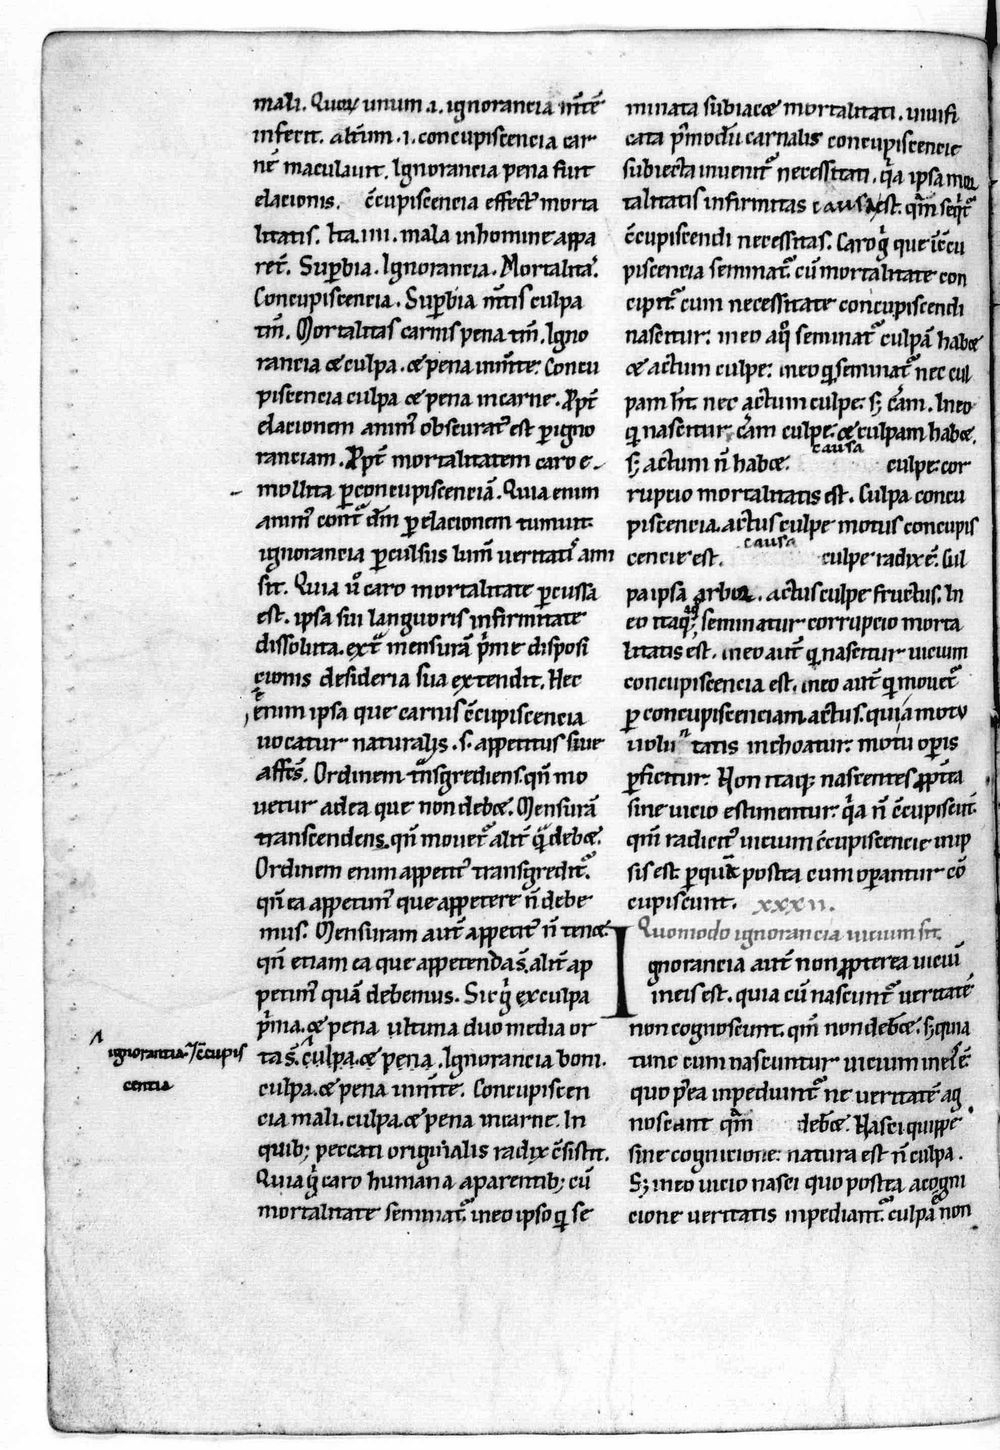 mali. Quoꝝ unum .i. ignorancia mt̄ē
infecit. alt̄um .i. concupiscencia car
nē maculauit. Ignorancia pena fuit
elacionis. c̄cupiscencia effectꝰ morta
litatis. Ita .iiii. mala in homine appa
rēt. Suꝑbia. Ignorancia. Mortalitaˢ.
Concupiscencia. Suꝑbia mt̄is culpa
tm̄. Mortalitas carnis pena tm̄. Igno
rancia & culpa. & pena in mt̄e: Concu
piscencia culpa & pena in carne. Ꝓpt̄
elacionem animꝰ obscuratꝰ est ꝑ igno
ranciam. Ꝓpt̄ mortalitatem caro e
mollita ꝑ concupiscenciā. Quia enim
animꝰ cont͛ dm̄ ꝑ elacionem tumuit
ignorancia ꝑculsus lum̄ ueritatis ami
sit. Quia ů caro mortalitate ꝑcussa
est. ipsa sui languoris infirmitate
dissoluta. ext͛ mensurā pͥme disposi
cionis desideria sua extendit. Hec
enim ipsa que carnis c̄cupiscencia
uocatur naturalis .s. appetitus siue
affcs̄. Ordinem tn̄sgrediens. qn̄ mo
uetur ad ea que non deb&. Mensurā
transcendens. qn̄ mouet᷑ alit̄ qͣ deb&.
Ordinem enim appetitꝰ transgredit᷑.
qn̄ ea appetimꝰ que appetere n̄ debe
mus. Mensuram aut̄ appetitꝰ n̄ ten&.
qn̄ etiam ea que appetenda s̄. alit̄ ap
petimꝰ quā debemus. Sic gͥ ex culpa
pͥma. & pena ultima duo media or
ta s̄. culpa. & pena. Ignorancia boni.
ignorantia. ⁊ c̄cupis
centia
culpa. & pena in mt̄e. Concupiscen
cia mali. culpa. & pena in carne. In
quib; peccati originalis radix c̄sistit.
Quia gͥ caro humana a parentib; cū
mortalitate seminat᷑. in eo ipso qͦ se
minata subiac& mortalitati. uiuifi
cata pͥmodū carnalis concupiscencie
subiecta inuenit᷑ necessitati. qͥa ipsa mor
talitatis infirmitas causa est. qm̄ seqͥt᷑
c̄cupiscendi necessitas. Caro gͥ que i c̄cu
piscencia seminat᷑. cū mortalitate con
cipit᷑. cum necessitate concupiscendi
nascitur: in eo aꝰ qͦ seminat᷑ culpā hab&
& actum culpe: in eo qͦ seminat᷑ nec cul
pam ht̄. nec actum culpe: s; cām. In eo
qͦ nascitur: cām culpe. & culpam hab&.
s; actum n̄ hab&. causa culpe: cor
rupcio mortalitatis est. Culpa concu
piscencia. actus culpe motus concupis
cencie est. causa culpe radix ē. Cul
pa ipsa arbor. actus culpe fructus. In
eo itaq; qͦ seminatur corrupcio morta
litatis est. in eo aut̄ qͦ nascitur uicium
concupiscencia est. in eo aut̄ qͦ mouet᷑
ꝑ concupiscenciam actus. qui a motu
uoluntatis inchoatur: motu oꝑis
ꝑficitur: Non itaq; nascentes ꝓpt̄ea
sine uicio estimentur: qͥa n̄ c̄cupiscūt:
qm̄ radicitꝰ uicium c̄cupiscencie in ip
sis est. ꝑ quā postea cum oꝑantur cō
cupiscunt. xxxii.
Quomodo ignorancia uicium sit.
Ignorancia aut̄ non ꝓpterea uiciū
in eis est. quia cū nascunt᷑ ueritatē
non cognoscunt. qm̄ non deb&. s; quia
tunc cum nascuntur uicium in eis ē.
quo pͦea inpediunt᷑ ne ueritatē ag
noscant qm̄ deb&. Nasci quippe
sine cognicione: natura est n̄ culpa.
S; in eo uicio nasci quo postea a cogni
cione ueritatis inpediant᷑. culpā non